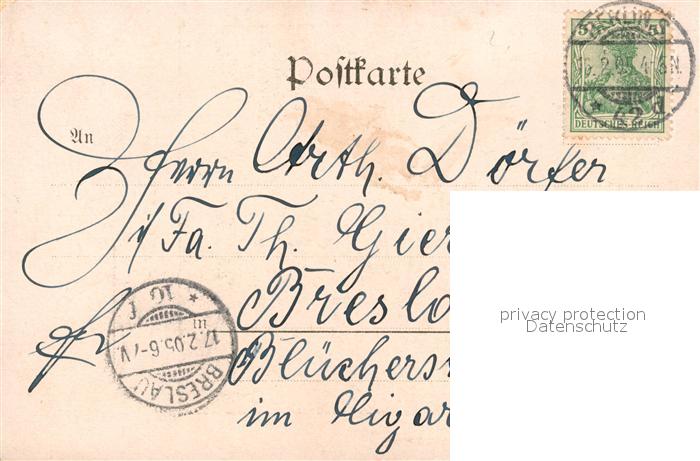 Postkarte
5 5
DEUTSCHES REICH
BERLIN
16.2.05. 4-5N.
An
Herrn Arth. Dörfer
i/Fa. Th. Gier
Breslo
Blüchers
im Higar
BRESLAU
17.2.05.6-7V.
m
* 10 f
privacy protection
Datenschutz